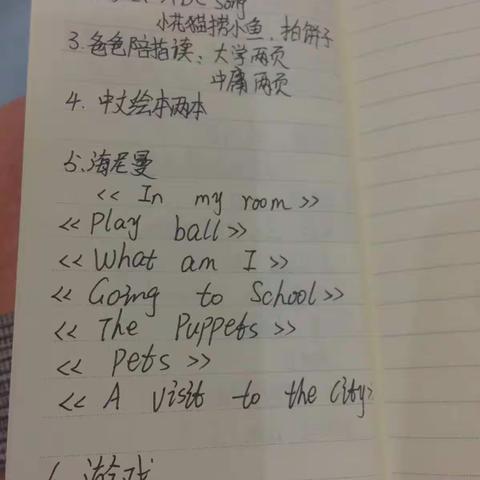 ABC song
小花猫捞小鱼、拍饼子
3.爸爸陪指读：大学两页
中庸两页
4.中文绘本两本
5.海尼曼
<< In my room >>
<< Play ball >>
<< What am I >>
<< Going to School >>
<< The Puppets >>
<< Pets >>
<< A visit to the city >
6.游戏